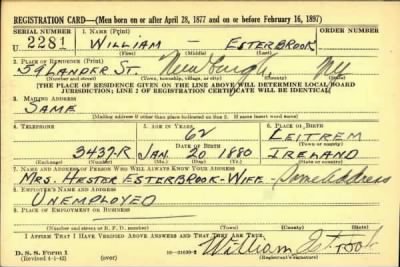 REGISTRATION CARD—(Men born on or after April 28, 1877 and on or before February 16, 1897)
SERIAL NUMBER 1. NAME (Print) ORDER NUMBER
U 2281 WILLIAM — ESTERBROOK
(First) (Middle) (Last)
2. PLACE OF RESIDENCE (Print)
59 LANDER ST. Newburgh NY
(Number and street) (Town, township, village, or city) (County) (State)
[THE PLACE OF RESIDENCE GIVEN ON THE LINE ABOVE WILL DETERMINE LOCAL BOARD
JURISDICTION; LINE 2 OF REGISTRATION CERTIFICATE WILL BE IDENTICAL]
3. MAILING ADDRESS
SAME
[Mailing address if other than place indicated on line 2. If same insert word same]
4. TELEPHONE 5. AGE IN YEARS 6. PLACE OF BIRTH
62 LEITREM
DATE OF BIRTH (Town or county)
3432-R JAN. 20 1880 IRELAND
(Exchange) (Number) (Mo.) (Day) (Yr.) (State or country)
7. NAME AND ADDRESS OF PERSON WHO WILL ALWAYS KNOW YOUR ADDRESS
MRS. HESTER ESTERBROOK-WIFE- Same Address
8. EMPLOYER'S NAME AND ADDRESS
UNEMPLOYED
9. PLACE OF EMPLOYMENT OR BUSINESS
(Number and street or R. F. D. number) (Town) (County) (State)
I AFFIRM THAT I HAVE VERIFIED ABOVE ANSWERS AND THAT THEY ARE TRUE.
D. S. S. Form 1 William
(Revised 4-1-42) (over) (Registrant's signature)